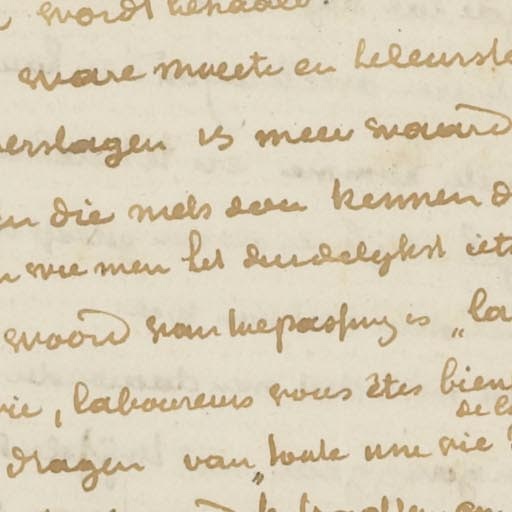 wordt behaald
ware moeite en teleurste
erslagen is meer waard
en die niets zou kennen d
wie men het duidelykst iets
woord van toepassing is „la
vie, laboureurs vous êtes bien
de la
dragen van „toute une vie